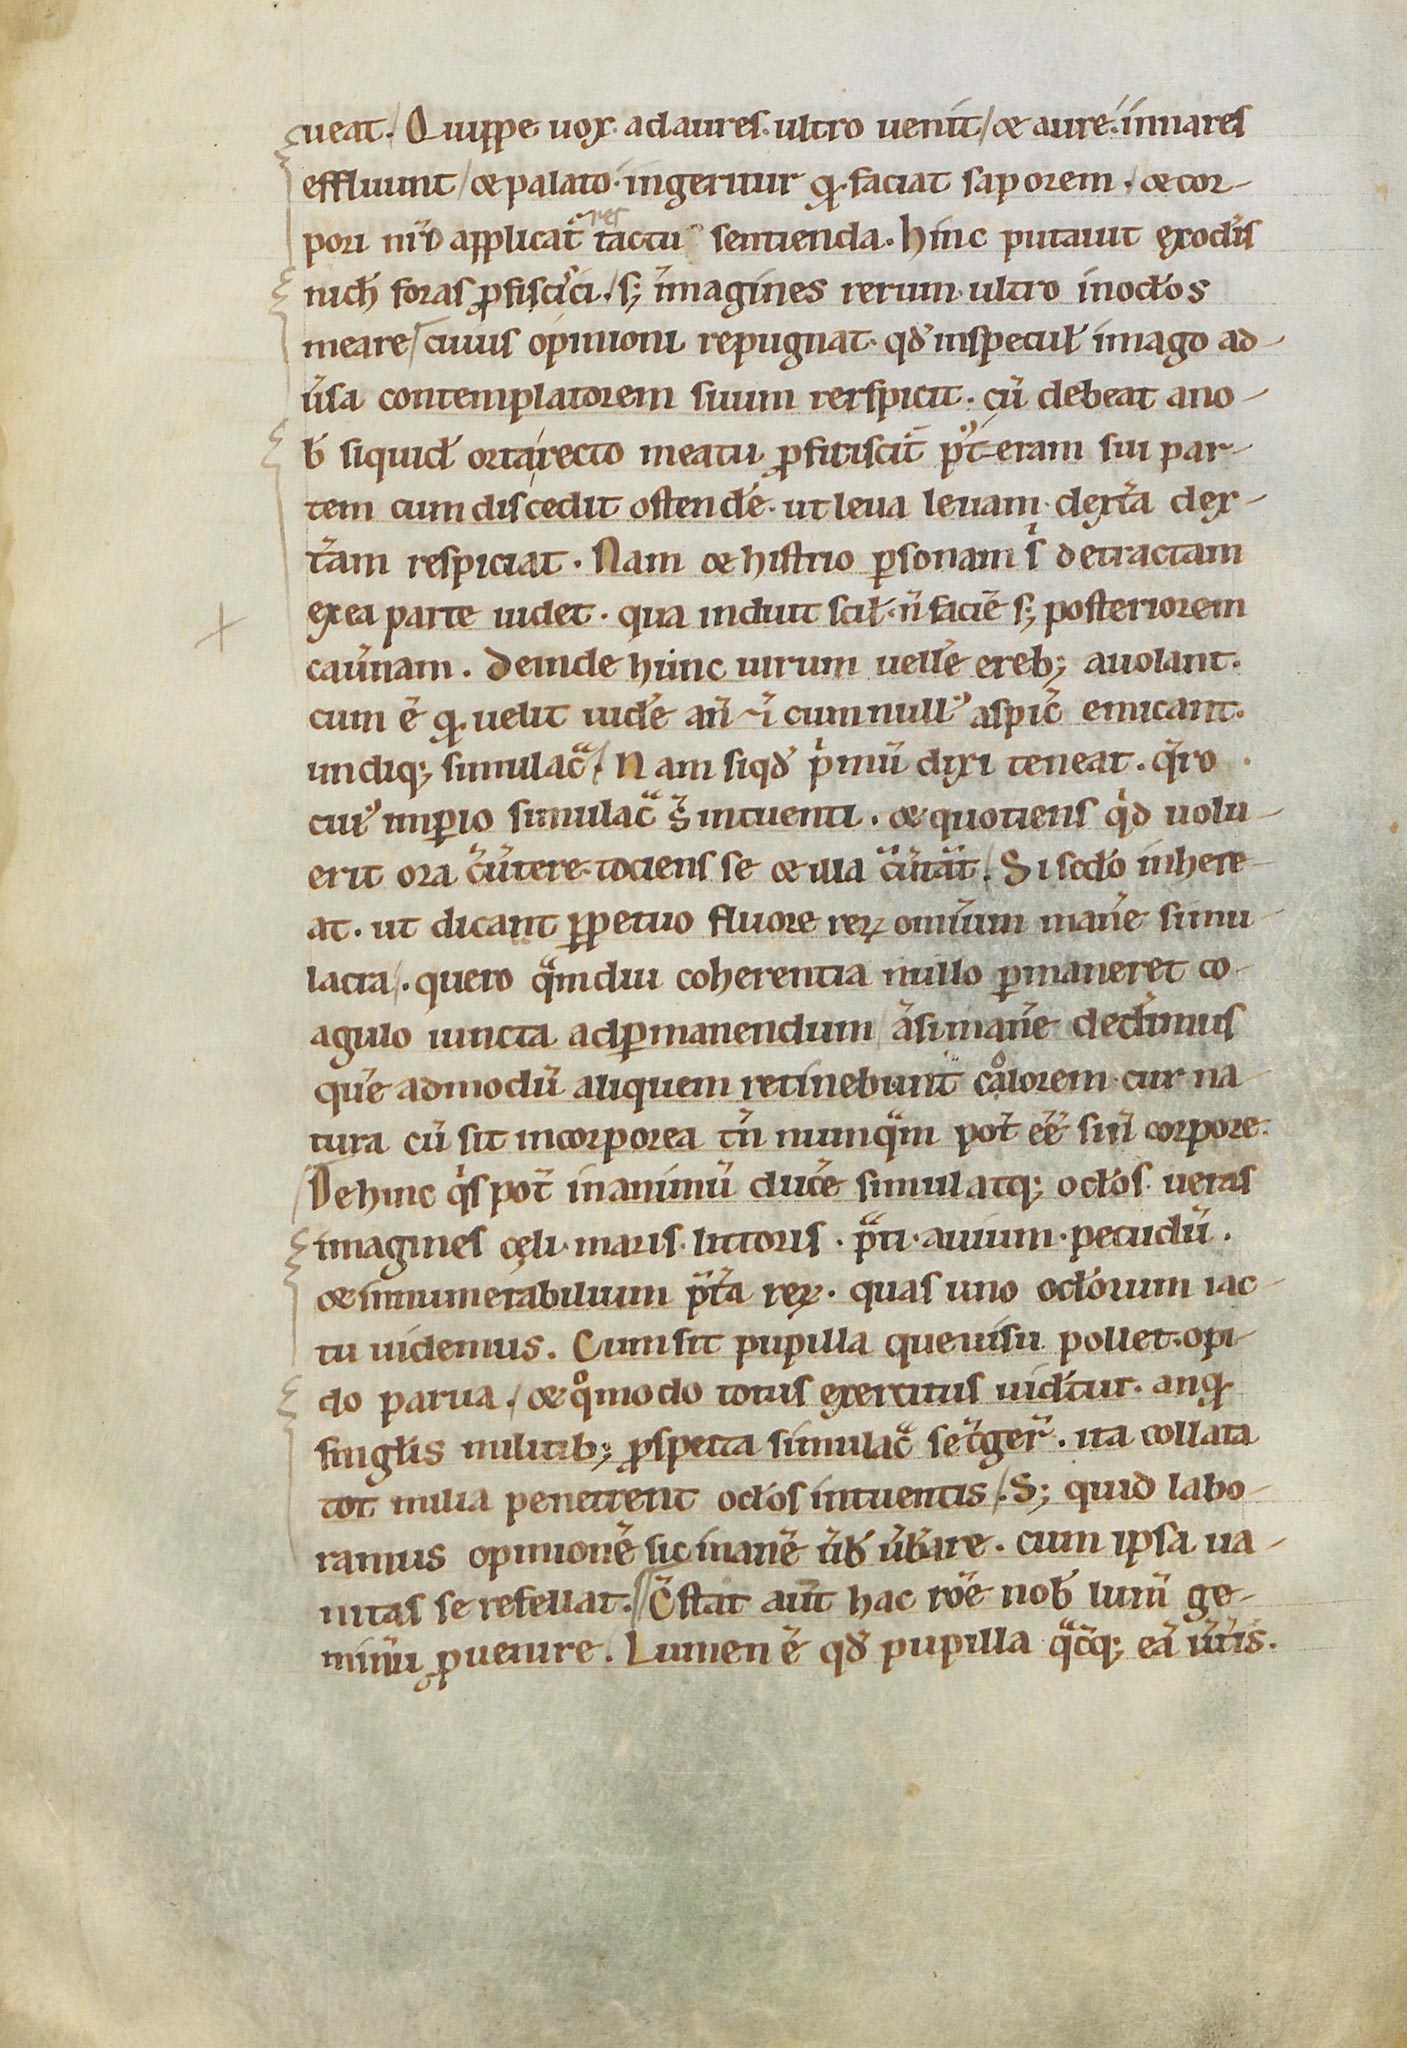 ueat. Quippe uox ad aures ultro uenit / & aurę. in nares
effluunt / & palato. ingeritur q̨ faciat saporem. / & cor-
pori nr̄o applicat̄ res tactu sentienda. hinc putauit ęx oc̄lis
nich̄ foras ꝓfiscisci. / s; imagines rerum ultro in oc̄los
meare / cuius opinioni repugnat. qd̄ in specul̄ imago ad-
ūsa contemplatorem suum rerspicit. cū debeat a no-
b̄ siquid̄ orta recto meatu ꝓficiscit̄ pt̄eram sui par-
tem cum discedit ostend̄e. ut leua leuam. dext̄a dex-
t̄am respiciat. Nam & histrio ꝑsonam s' detractam
ex ea parte uidet. qua induit scil̄. n̄ faciē s; posteriorem
cau̅nam. Deinde hunc uirum uelle ereb; auolant.
cum ē q̨ uelit uid̄e an̄ ÷ī cum null᾽ aspic̄ emicant.
undiq; simulac̄ / Nam si qd̄ pͥmū dixi teneat. q̄ro
cui᾽ imꝑio simulac̄ ... intuenti. & quotiens qͥd uolu-
erit ora c̄u̅tere. tociens se & illa c̄u̅tāt / Si sc̄do inhere-
at. ut dicant ꝑpetuo fluore reꝝ omnium man̄e simu-
lacra /. quero qͣmdiu coherentia nullo ꝑmaneret co-
agulo iuncta ad ꝑmanendum / āsi man̄e ded̄imus
que admodū aliquem retinebunt calorem. cur na-
tura cū sit incorporea tn̄ numqͣm pot̄ eē sin̄ corpore.
Dehinc qͥs pot̄ in animū duc̄e simul atq; oc̄los. ueras
imagines cęli. maris. littoris. pͣti. auium. pecudū.
& innumerabilium pt̄a reꝝ. quas uno oc̄lorum iac-
tu uidemus. Cum sit pupilla que uisu pollet. opi-
do parua. / & qͦmodo totus exercitus uidt̄ur. an q̨
singl̄is militib; ꝓspecta simulac̄ se ... . ita collata
tot milia penetrent oc̄los intuentis /. S; quid labo-
ramus opinionē sic inanē u̅b̄ u̅b̄are. cum ipsa ua-
nitas se refellat. / C̄stat aut̄ hac ro̅e nob̄ lum̄ ge-
minū ꝓuenire. Lumen ē qd̄ pupilla qͣc̄q; eā u̅t̄is.